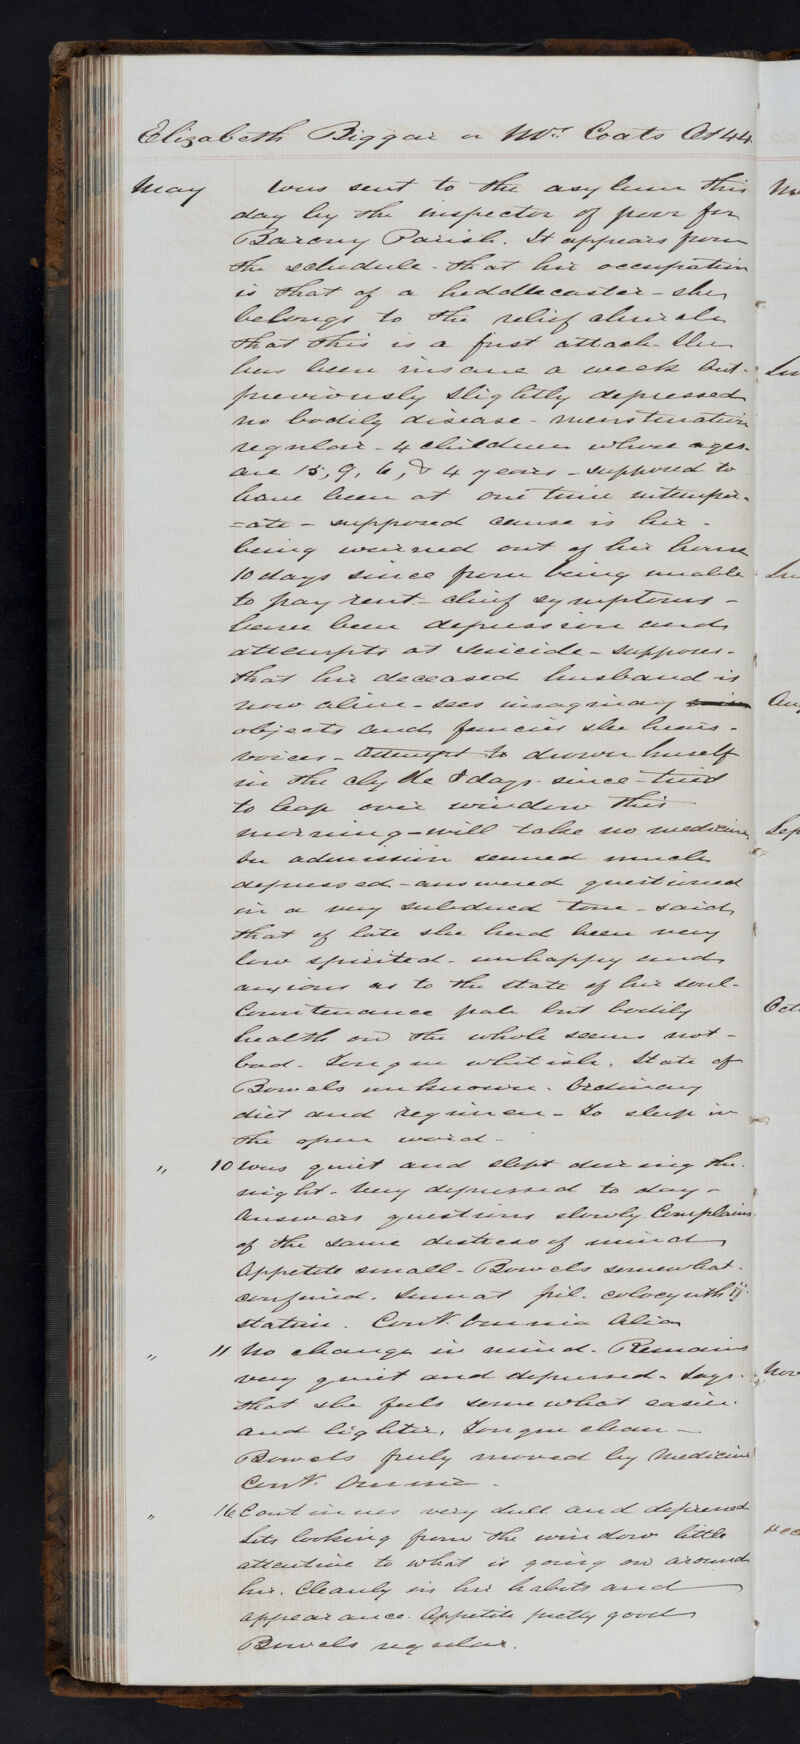 Elizabeth Biggar or Mrs. Coats Aet 44
May Was sent to the asylum this
day by the inspector of poor for
Barony Parish. It appears from
the schedule - that her occupation
is that of a heddlecaster - she
belongs to the relief church
that this is a first attack. She
has been insane a week but -
previously slightly depressed
no bodily disease - menstruation
regular - 4 children whose ages -
are 15, 9, 6, & 4 years - supposed to
have been at one time intemper-
=ate - supposed cause is her -
being warned out of her house
10 days since from being unable
to pay rent - chief symptoms -
have been depression and
attempts at suicide - supposes -
that her deceased husband is
now alive - sees imaginary
objects and fancies she hears -
voices - attempt to drown herself
in the clyde 8 days since - tried
to leap over window this
morning - will take no medicine
on admission seemed much
depressed - answered questioned
in a very subdued tone - said
that of late she had been very
low spirited - unhappy and
anxious as to the state of her soul -
Countenance pale but bodily
health on the whole seems not -
bad - Tongue whitish. State of
Bowels unknown. Ordinary
diet and regimen - To sleep in
the open ward -
" 10 Was quiet and slept during the
night - Very depressed to day -
Answers questions slowly. Complains
of the same distress of mind
Appetite small - Bowels somewhat
confined. Sumat pil. colocynth ij
statim. Cont. Omnia Alia
" 11 No change in mind - Remains
very quiet and depressed - Says -
that she feels somewhat easier
and lighter. Tongue clean -
Bowels freely moved by Medicine
Cont. Omnia -
" 16 Continues very dull and depressed
Sits looking from the window little
attentive to what is going on around
her. Cleanly in her habits and
appearance. Appetite pretty good
Bowels regular.